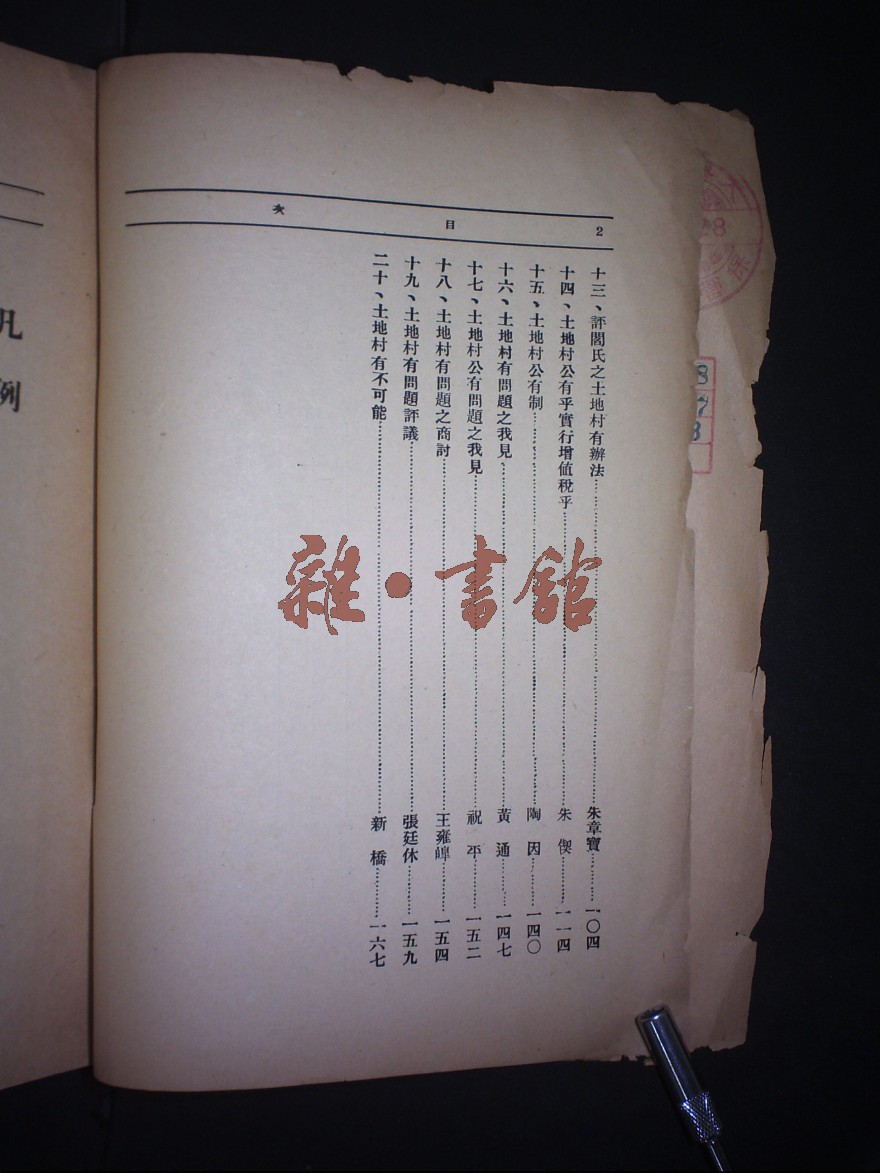 2　目　次
十三、評閻氏之土地村有辦法……朱章寶……一〇四
十四、土地村公有乎實行增值稅乎……朱　偰……一一四
十五、土地村公有制……陶　因……一四〇
十六、土地村有問題之我見……黃　通……一四七
十七、土地村公有問題之我見……祝　平……一五二
十八、土地村有問題之商討……王雍皞……一五四
十九、土地村有問題評議……張廷休……一五九
二十、土地村有不可能……新　橋……一六七
凡例
雜・書館
8
7
3